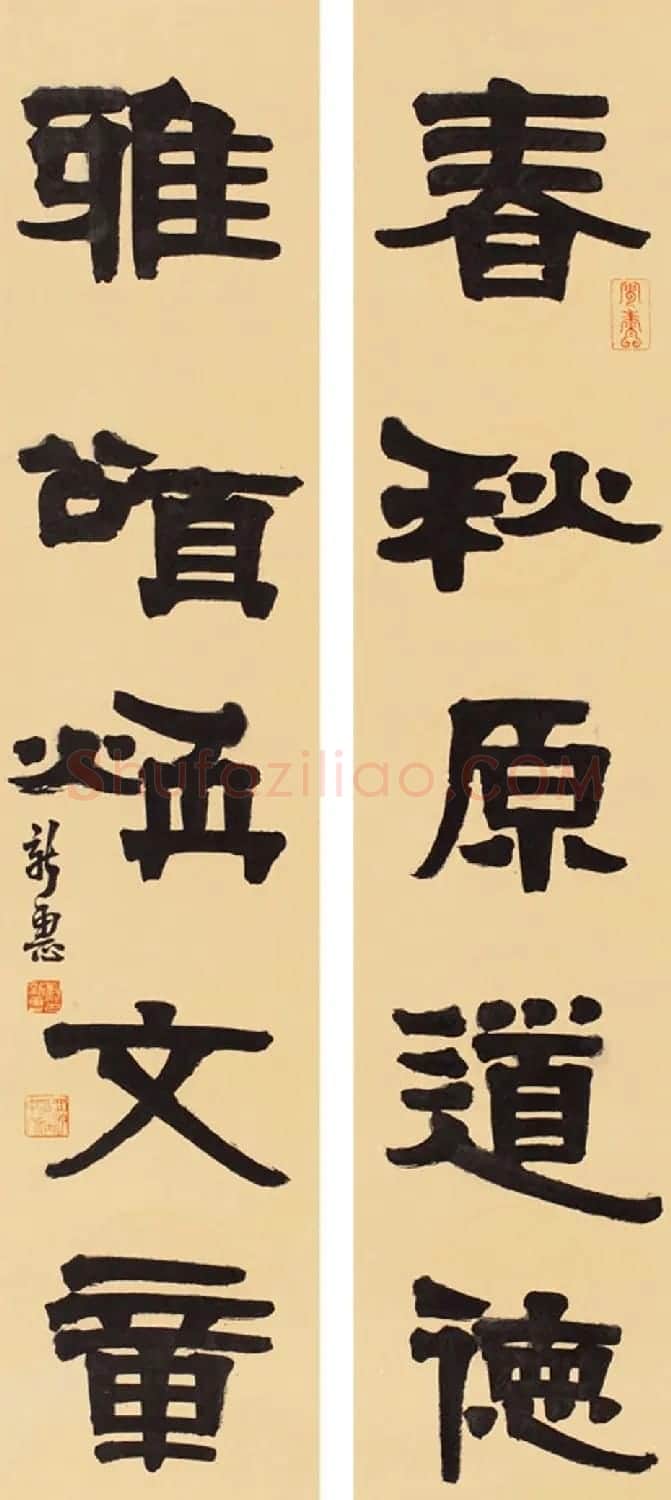 春秋原道德
雅頌文章
新惠
Shufaziliao.COM